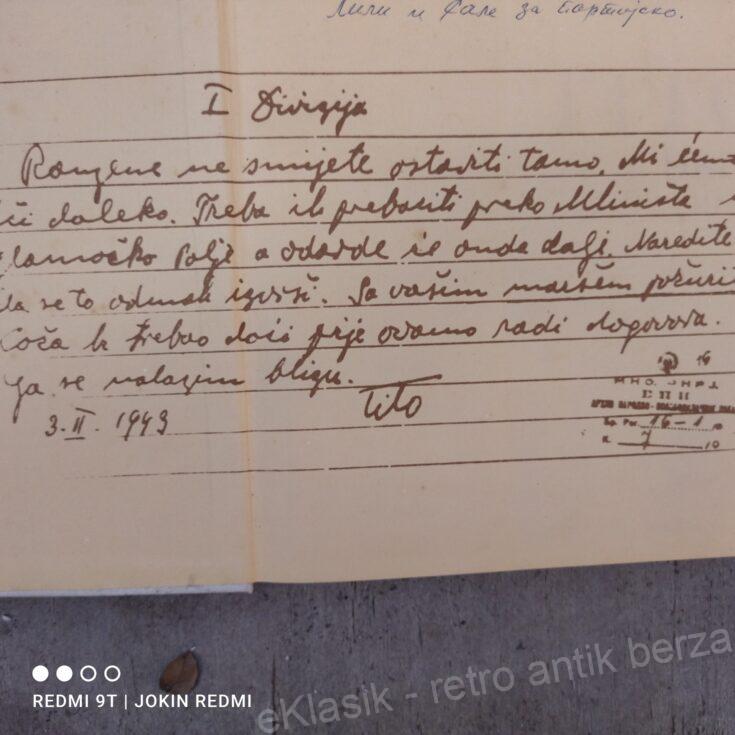 Лили и Сале за
I Divizija
Ranjene ne smijete ostaviti tamo. Mi ćemo
ići daleko. Treba ih prebaciti preko Mliništa
Glamočko Polje a odavde će onda dalje. Naredite
da se to odmah izvrši. Sa vašim maršem požuri
Koča bi trebao doći prije ovamo radi dogovora.
Ja se nalazim blizu.
Tito
3. II. 1943
16-1
7
REDMI 9T | JOKIN REDMI
eKlasik - retro antik berza